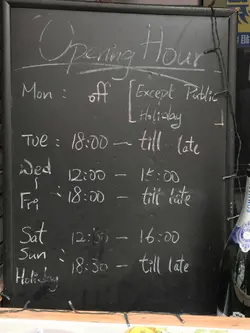 Opening Hour
Mon : off [Except Public
Holiday
Tue : 18:00 — till late
Wed 12:00 — 15:00
Fri : 18:00 — till late
Sat 12:30 — 16:00
Sun :
Holiday 18:30 — till late